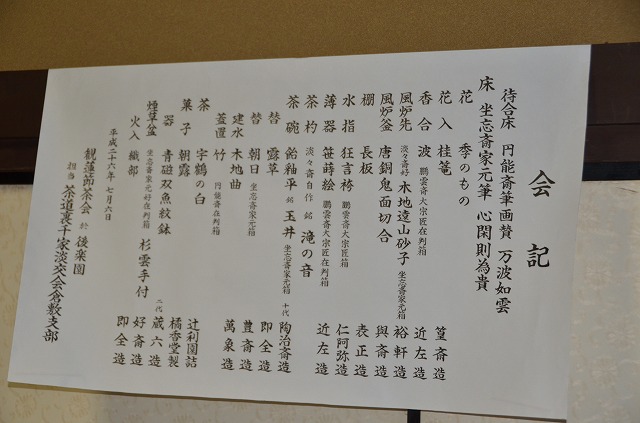 会記
待合床 円能斎筆画賛 万波如雲
床 坐忘斎家元筆 心閑則為貴
花 季のもの
花入 桂篭 篁斎造
香合 波 鵬雲斎大宗匠在判箱 近左造
風炉先 淡々斎好 木地遠山砂子 坐忘斎家元箱 裕軒造
風炉釜 唐銅鬼面切合 與斎造
棚 長板 表正造
水指 狂言袴 鵬雲斎大宗匠箱 仁阿弥造
薄器 笹蒔絵 鵬雲斎大宗匠在判箱 近左造
茶杓 淡々斎自作 銘 滝の音
茶碗 飴釉平 銘 玉井 坐忘斎家元箱 十代 陶治斎造
替 露草 即全造
替 朝日 坐忘斎家元箱 豊斎造
建水 木地曲 萬象造
蓋置 竹 円能斎在判箱
茶 宇鶴の白 辻利園詰
菓子 朝露 橘香堂製
器 青磁双魚紋鉢 二代 蔵六造
煙草盆 坐忘斎家元好在判箱 杉雲手付 好斎造
火入 織部 即全造
平成二十六年 七月六日
観蓮節茶会 於 後楽園
担当 茶道裏千家淡交会倉敷支部